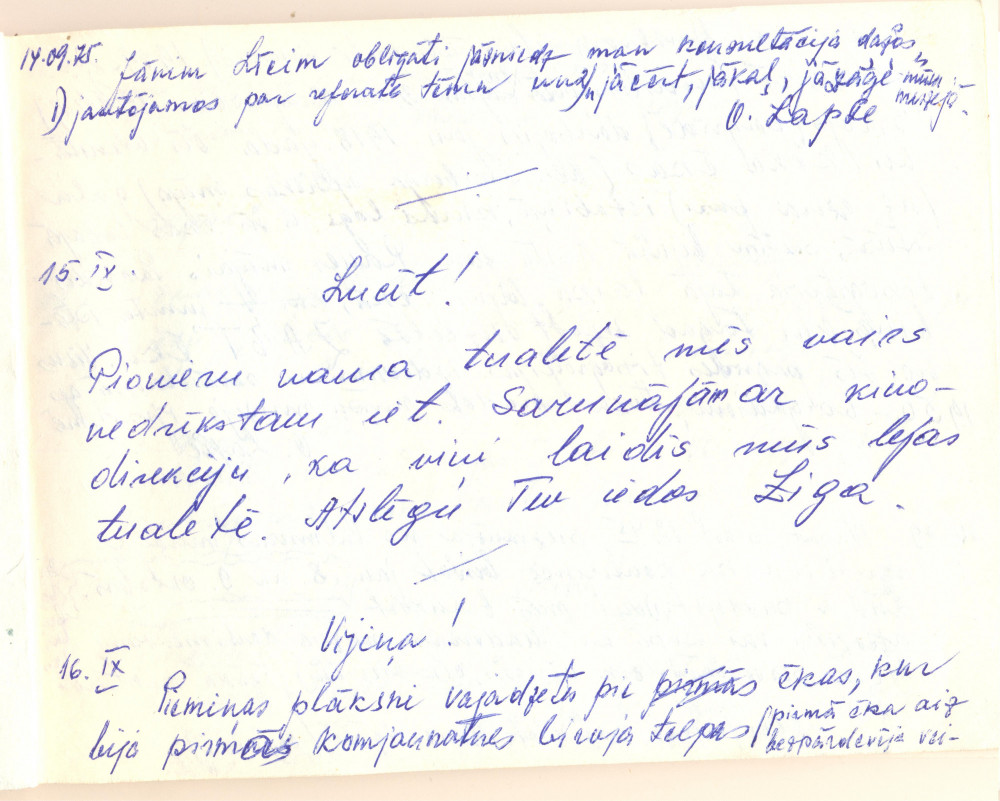 14.09.75. Jānim Līcim obligāti jāsniedz man konsultācija dažos
1) jautājumos par referātu tēmu jācērt, jākaļ, jāzāgē mūsu
muzejā.
O. Lapse
15. IX. Lucīt!
Pionieru nama tualetē mēs vairs
nedrīkstam iet. Sarunājām ar kino-
direkciju, ka viņi laidīs mūs lejas
tualetē. Atslēgu Tev iedos Ziga.
Vijiņa!
16. IX Piemiņas plāksni vajadzētu pie pirmās ēkas, kur
bija pirmās komjaunatnes biroja telpas / pirmā ēka aiz
bezpārdevēja vei-